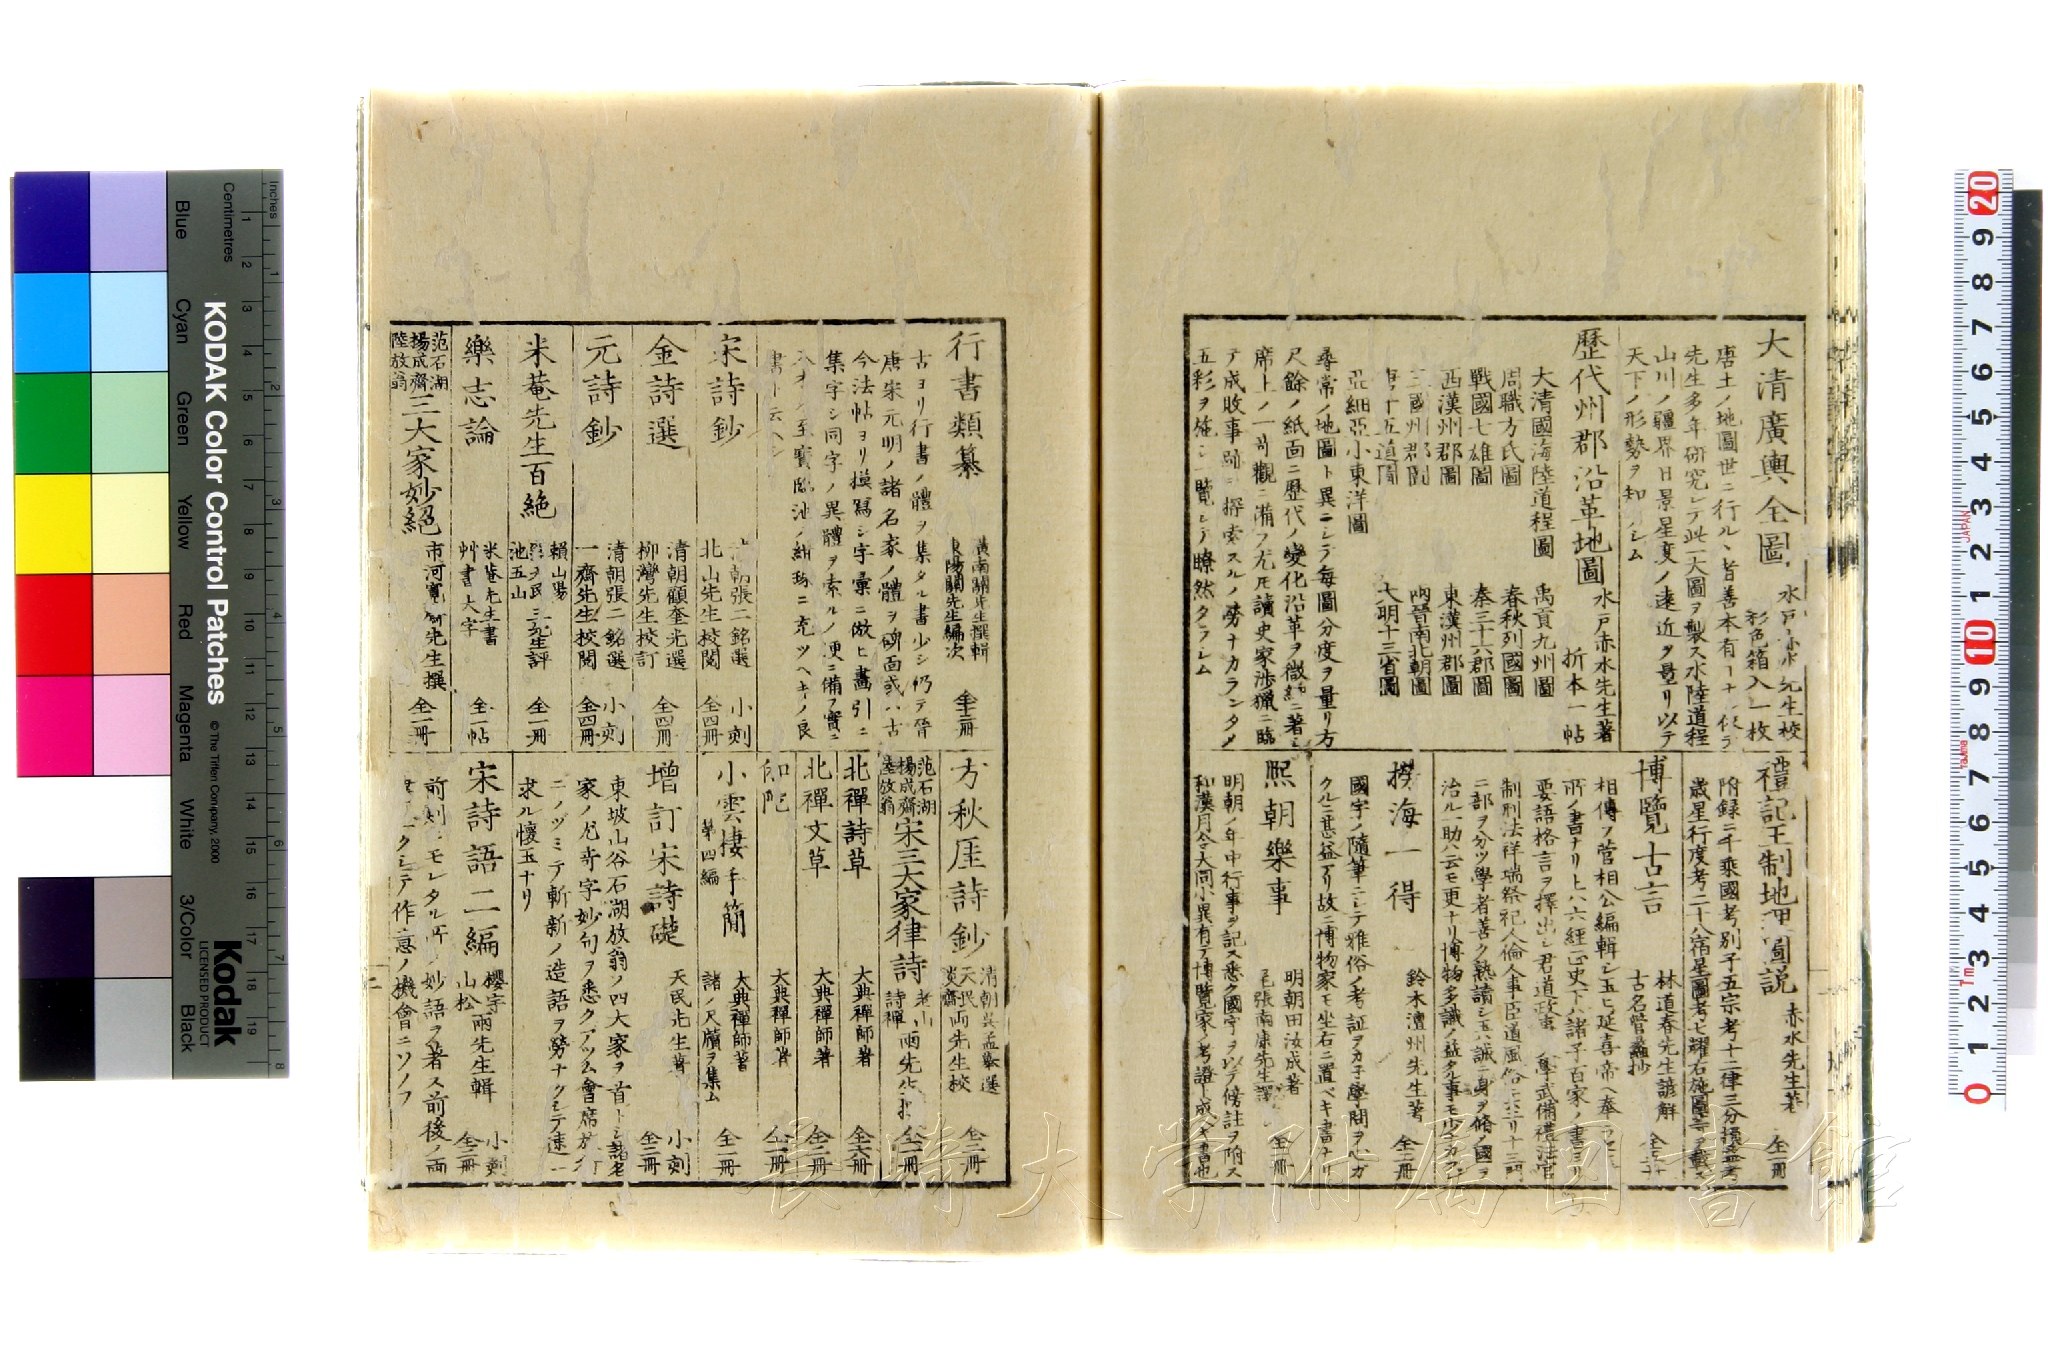 大清廣輿全圖
水戸赤水先生校
彩色箱入一枚
唐土ノ地圖世ニ行ルヽ者善本有
先生多年研究シテ此一大圖ヲ製ス水陸道程
山川ノ疆界日景星度ノ遠近ヲ量リ以テ
天下ノ形勢ヲ知ラシム
歷代州郡沿革地圖
水戸赤水先生著
折本一帖
大清國海陸道程圖 禹貢九州圖
周職方氏圖 春秋列國圖
戰國七雄圖 秦三十六郡圖
西漢州郡圖 東漢州郡圖
三國州郡圖 兩晉南北朝圖
唐十五道圖 大明十三省圖
亞細亞小東洋圖
尋常ノ地圖ト異ニシテ每圖分度ヲ量リ方
尺餘ノ紙面ニ歷代ノ變化沿革ヲ微細ニ著シ
席上ノ一奇觀ニ備フ尤モ讀史家渉獵ニ臨
テ成敗事跡ヲ探索スルノ勞ナカランタメ
五彩ヲ施シ一覽シテ瞭然タラシム
禮記王制地理圖説
赤水先生著
全一冊
附録ニ千乘國考別子五宗考十二律三分損益考
歲星行度考二十八宿星圖考七耀右旋圖等ヲ載ス
博覽古言
林道春先生諺解
古名管蠡抄
相傳フ菅相公編輯シ玉ヒ延喜帝ヘ奉ラ
所ノ書ナリトハ六經正史下ハ諸子百家ノ書ヨリ
要語格言ヲ擇出シ君道政事 學武備禮法官
制刑法祥瑞祭祀人倫人事臣道風俗
ニ部ヲ分ツ學者善ク熟讀シ玉ハ誠ニ身ヲ脩ノ國ヲ
治ル一助ハ云モ更ナリ博物多識ノ益タル事モ少カラ
撈海一得
鈴木澶州先生著
全二冊
國字ノ隨筆ニシテ雅俗ノ考証ヲカ子學問ヲ心ガ
クルニ甚益アリ故ニ博物家モ坐右ニ置ベキ書ナリ
熙朝樂事
明朝田汝成著
尾張南康先生譯
全一冊
明朝ノ年中行事ヲ記ス悉ク國字ヲ以テ傍註ヲ附ス
和漢月令大同小異有テ博覽家ノ考證ト成ヘキ書也
行書類纂
黃南關先生撰輯
東陽關先生編次
古ヨリ行書ノ體ヲ集タル書少シ仍テ晉
唐宋元明ノ諸名家ノ體ヲ碑面或ハ古
今法帖ヨリ摸寫シ字彙ニ倣ヒ畫引ニ
集字シ同字ノ異體ヲ索ルノ便ニ備フ實ニ
至寶臨池ノ紺珠ニ充ツヘキノ良
書ト云ヘシ
宋詩鈔
清朝張二銘選
北山先生校閲
小刻
全四冊
金詩選
清朝顧奎光選
柳灣先生校訂
全四冊
元詩鈔
清朝張二銘選
一齋先生校閲
小刻
全四冊
米菴先生百絶
賴山陽
池五山
全一冊
樂志論
米菴先生書
艸書大字
全一帖
范石湖
楊成齋
陸放翁
三大家妙絕
市河寛齋先生撰
全一冊
方秋厓詩鈔
清朝吳孟擧選
天民
淡齋兩先生校
全二冊
范石湖
楊成齋
陸放翁
宋三大家律詩
詩禪
全一冊
北禪詩草
大典禪師著
全六冊
北禪文草
大典禪師著
全二冊
大典禪師著
全二冊
小雲棲手簡
第四編
大典禪師著
諸ノ尺牘ヲ集ム
全二冊
增訂宋詩礎
天民先生著
小刻
全二冊
東坡山谷石湖放翁ノ四大家ヲ首トシ諸名
家ノ尤奇字妙句ヲ悉クアツム會席
ニノゾミテ斬新ノ造語ヲ勞ナクシテ速ニ
求ル懷玉ナリ
宋詩語二編
櫻宇
山松兩先生輯
小刻
全二冊
前刻ニモレタル所ノ妙語ヲ著ス前後ノ両
クシテ作意ノ機會ニソノフ
二
長崎大学附属図書館
KODAK Color Control Patches
© The Tiffen Company, 2000
Kodak
LICENSED PRODUCT
Inches
Centimetres
Blue
Cyan
Green
Yellow
Red
Magenta
White
3/Color
Black
JAPAN